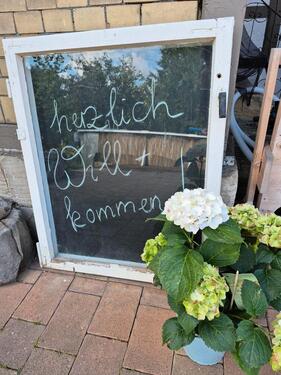 herzlich
Will +
kommen!